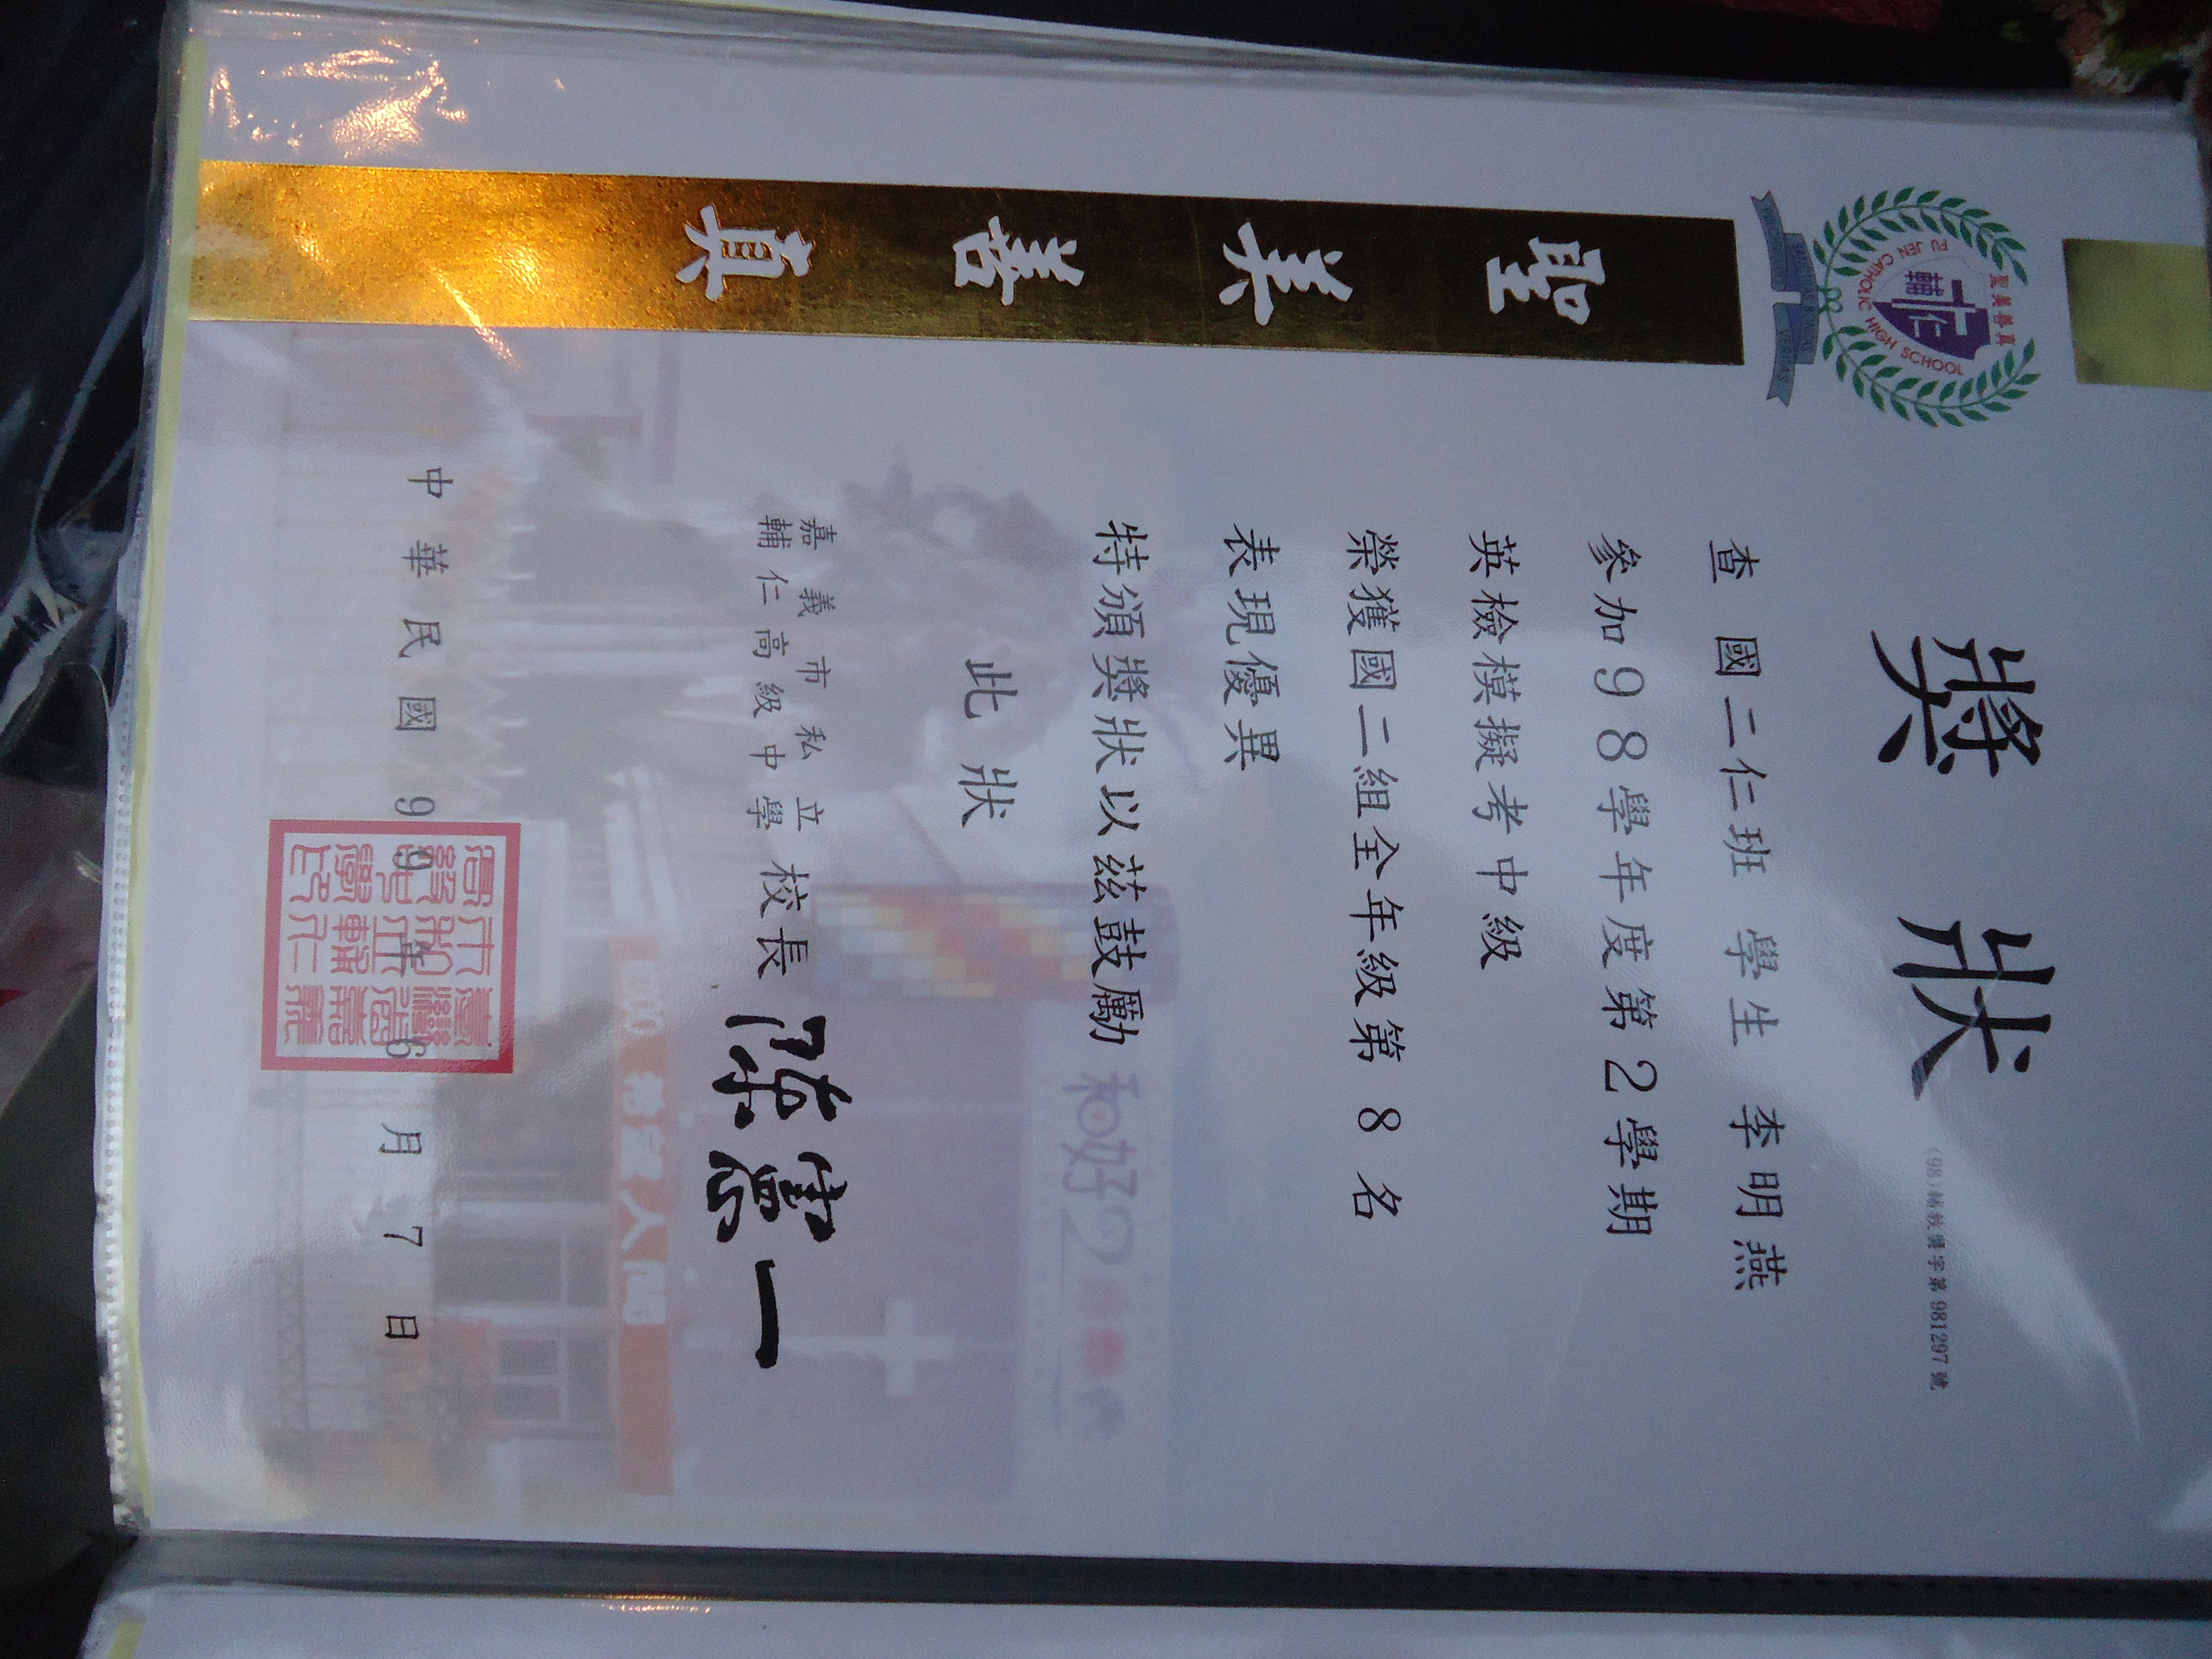 聖美善真
FU JEN CATHOLIC HIGH SCHOOL
輔仁
VERITAS
聖
美
善
真
獎狀
查 國二仁班 學生 李明燕
參加98學年度第2學期
英檢模擬考中級
榮獲國二組全年級第 8 名
表現優異
特頒獎狀以茲鼓勵
此狀
嘉義市私立
輔仁高級中學 校長 陳憲一
和好2
中華民國 99 年 6 月 7 日